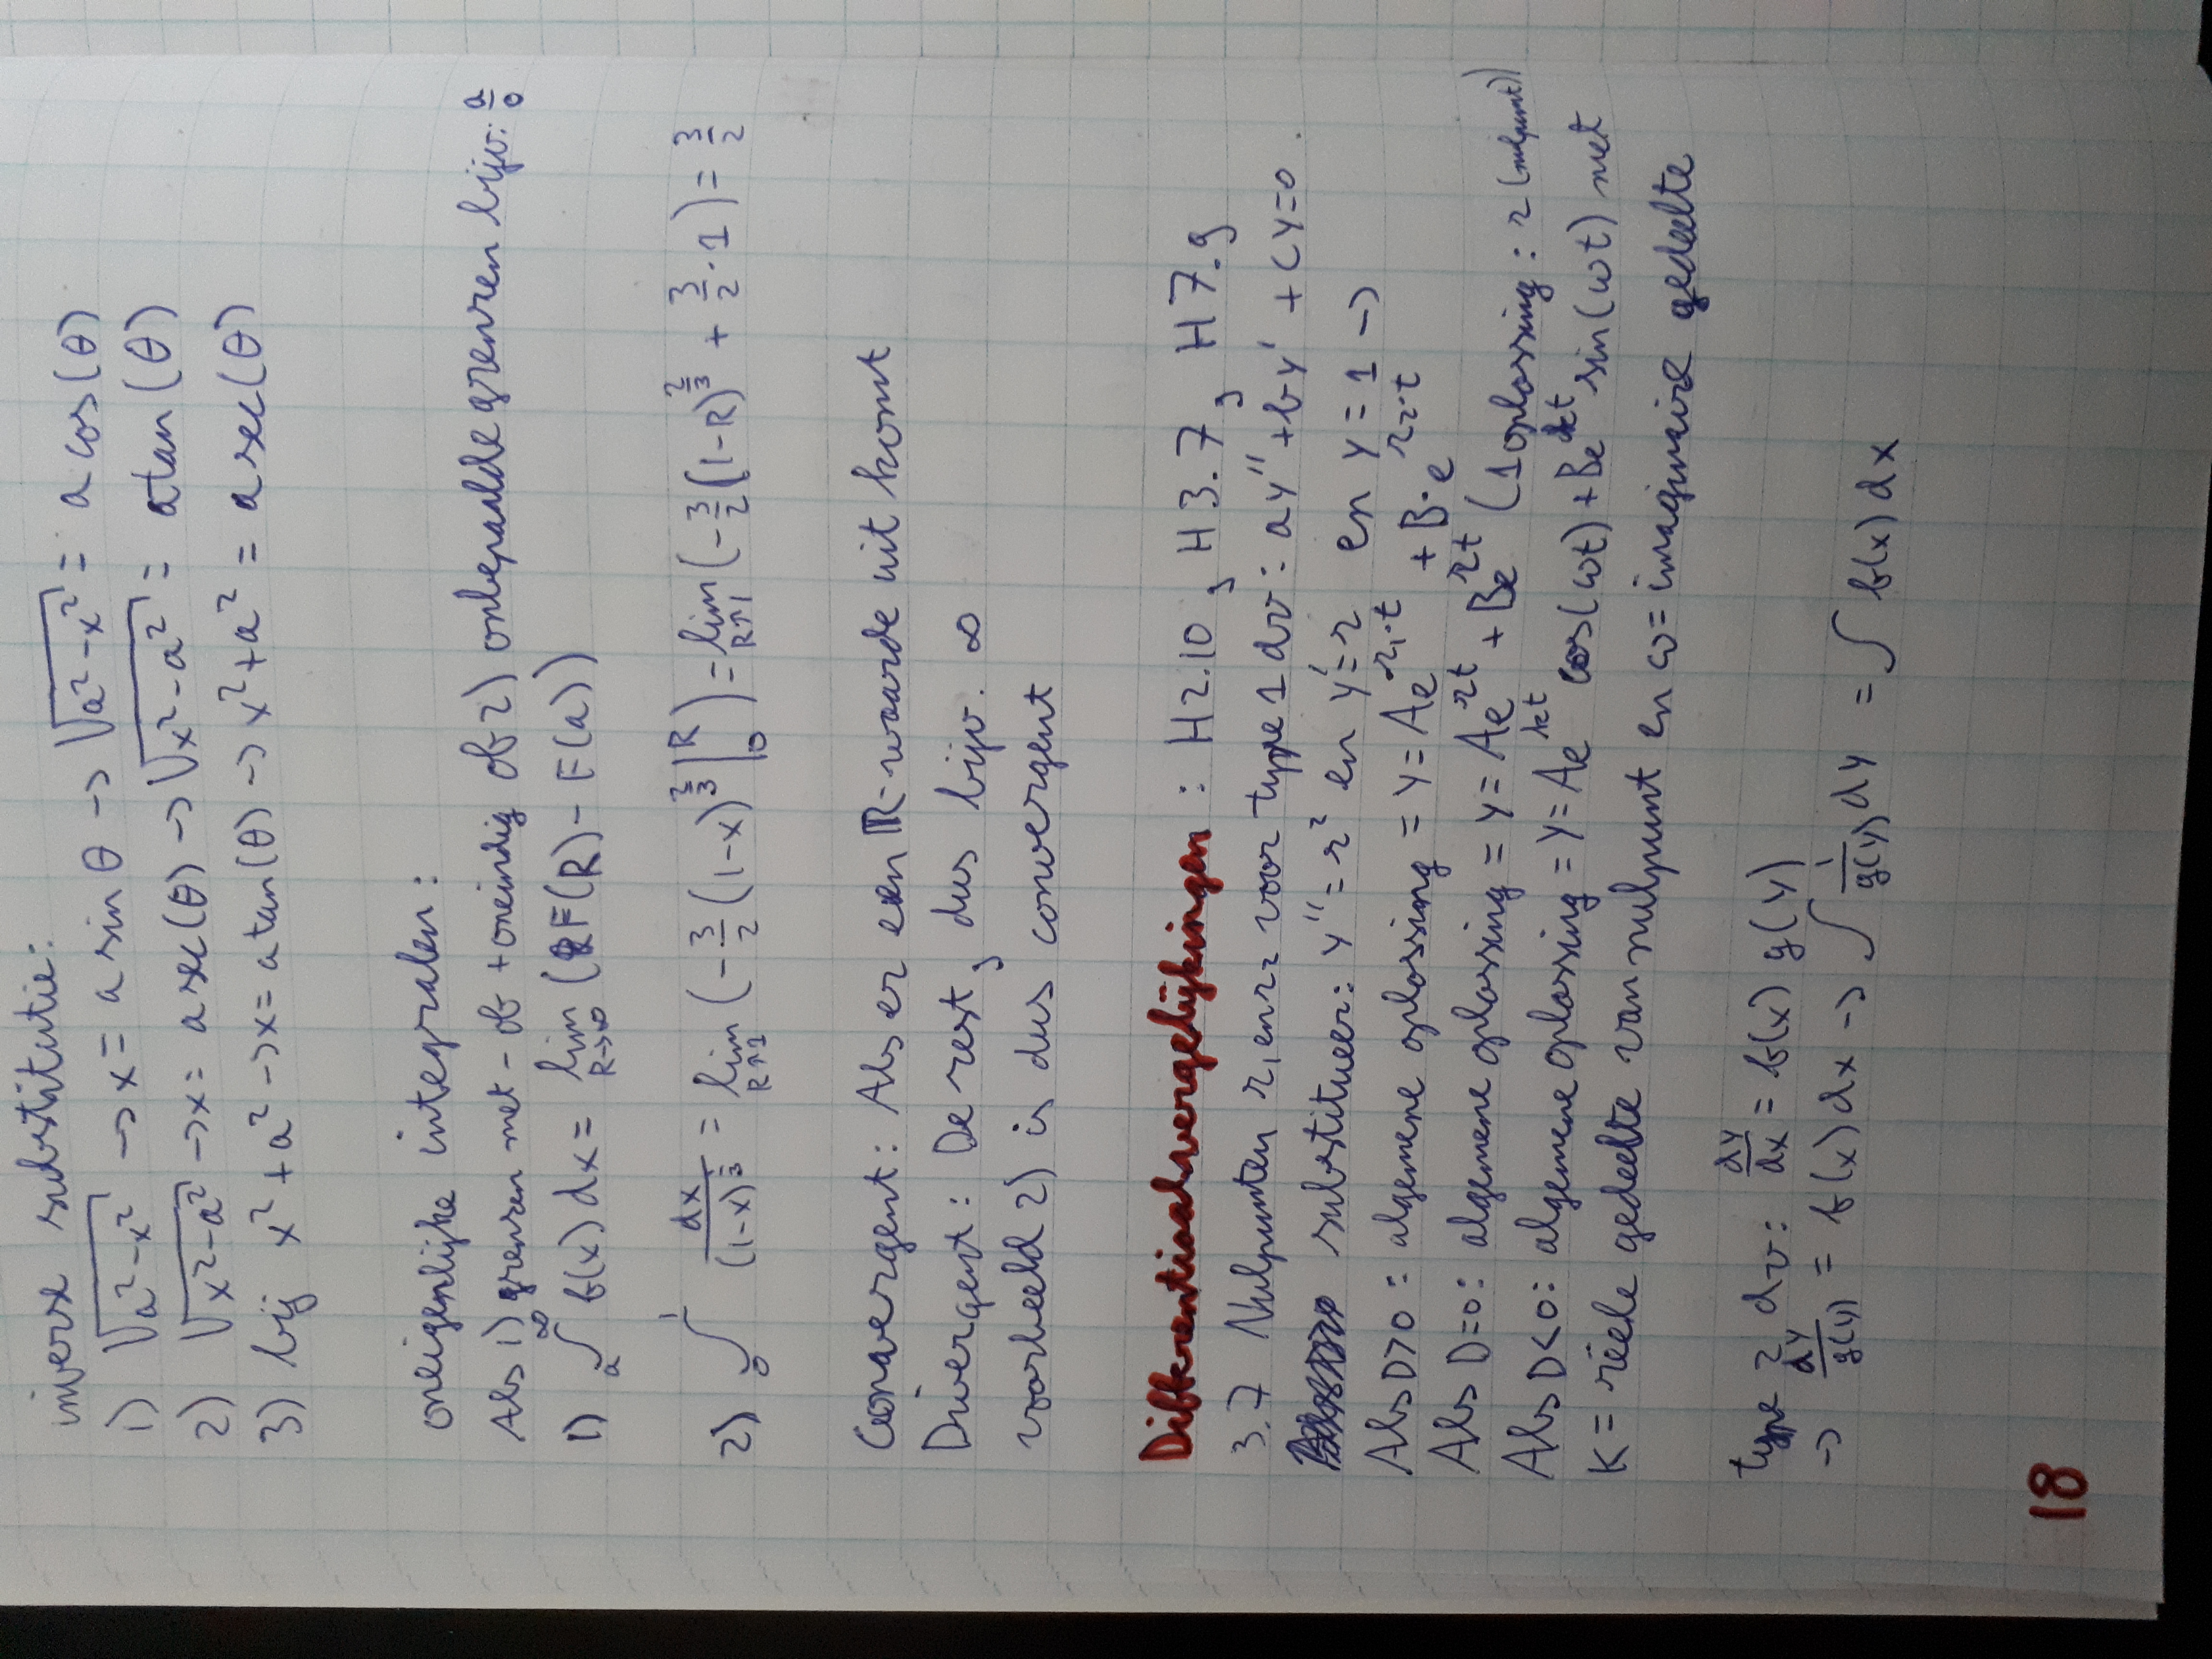 inverse substitutie:
1) √(a²-x²) -> x = a sin θ -> √(a²-x²) = a cos(θ)
2) √(x²-a²) -> x = a sec(θ) -> √(x²-a²) = a tan(θ)
3) bij x²+a² -> x = a tan(θ) -> x²+a² = a sec(θ)
oneigenlijke integralen:
Als 1) grenzen met - of + oneindig of 2) onbepaalde grenzen bijv. a/0
1) ∫_a^∞ f(x) dx = lim_{R→∞} (F(R) - F(a))
2) ∫_0^1 dx/(1-x)^{1/3} = lim_{R↑1} (-3/2 (1-x)^{2/3} |_0^R) = lim_{R↑1} (-3/2 (1-R)^{2/3} + 3/2 · 1) = 3/2
Convergent: Als er een ℝ-waarde uit komt
Divergent: De rest, dus bijv. ∞
voorbeeld 2) is dus convergent
Differentiaalvergelijkingen: H2.10, H3.7, H7.9
3.7 Nulpunten r₁ en r₂ voor type 1 dv: ay'' + by' + cy = 0
substitueer: y'' = r² en y' = r en y = 1 ->
Als D>0: algemene oplossing = y = Ae^{r₁·t} + B·e^{r₂·t}
Als D=0: algemene oplossing = y = Ae^{rt} + Be^{rt} (1 oplossing: r (nulpunt))
Als D<0: algemene oplossing = y = Ae^{kt} cos(ωt) + Be^{kt} sin(ωt) met
K = rëele gedeelte van nulpunt en ω = imaginaire gedeelte
type 2 dv: dy/dx = f(x) g(y)
-> dy/g(y) = f(x) dx -> ∫ 1/g(y) dy = ∫ f(x) dx
18